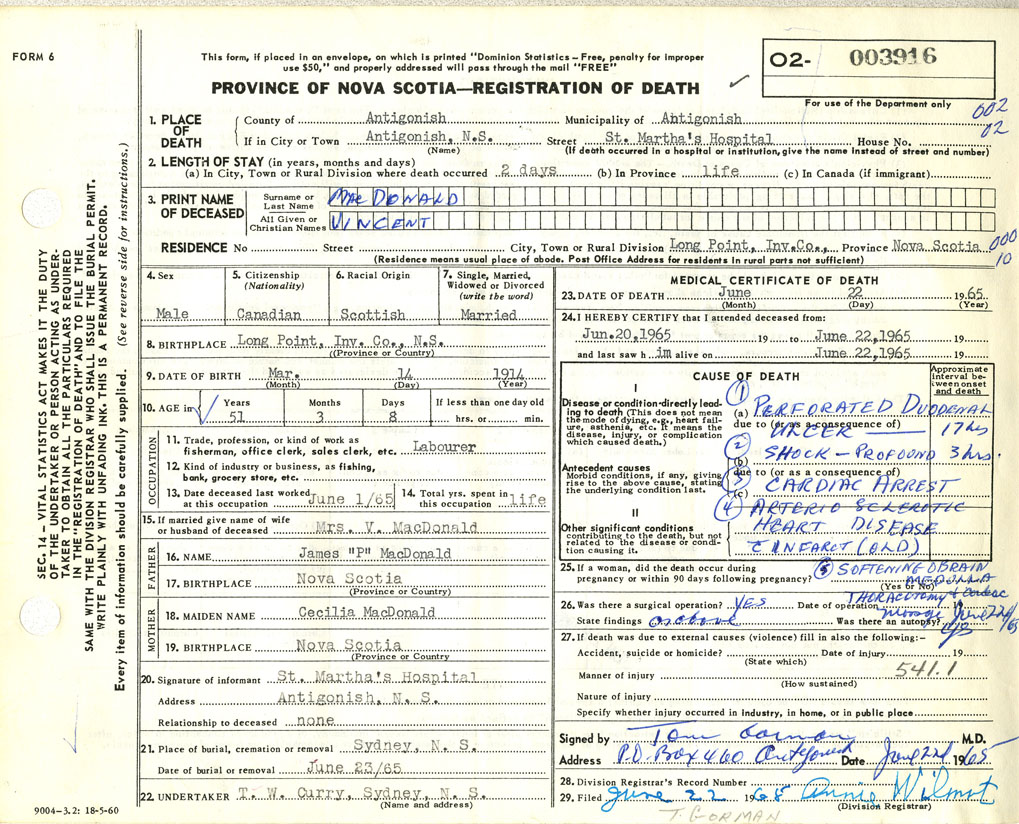 FORM 6
This form, if placed in an envelope, on which is printed "Dominion Statistics – Free, penalty for improper
use $50," and properly addressed will pass through the mail "FREE"
PROVINCE OF NOVA SCOTIA—REGISTRATION OF DEATH
O2- 003916
For use of the Department only
002
02
1. PLACE OF DEATH
County of Antigonish Municipality of Antigonish
If in City or Town Antigonish, N.S. Street St. Martha's Hospital House No.
(Name) (If death occurred in a hospital or institution, give the name instead of street and number)
2. LENGTH OF STAY (in years, months and days)
(a) In City, Town or Rural Division where death occurred 2 days (b) In Province life (c) In Canada (if immigrant)
3. PRINT NAME OF DECEASED
Surname or Last Name MacDONALD
All Given or Christian Names VINCENT
RESIDENCE No Street City, Town or Rural Division Long Point, Inv.Co., Province Nova Scotia
(Residence means usual place of abode. Post Office Address for residents in rural parts not sufficient)
000
10
4. Sex
Male
5. Citizenship (Nationality)
Canadian
6. Racial Origin
Scottish
7. Single, Married, Widowed or Divorced (write the word)
Married
8. BIRTHPLACE Long Point, Inv. Co., N.S.
(Province or Country)
9. DATE OF BIRTH Mar. 14 1914
(Month) (Day) (Year)
10. AGE in Years Months Days If less than one day old
51 3 8 hrs. or min.
OCCUPATION
11. Trade, profession, or kind of work as
fisherman, office clerk, sales clerk, etc. Labourer
12. Kind of industry or business, as fishing,
bank, grocery store, etc.
13. Date deceased last worked at this occupation June 1/65
14. Total yrs. spent in this occupation life
15. If married give name of wife
or husband of deceased Mrs. V. MacDonald
FATHER
16. NAME James "P" MacDonald
17. BIRTHPLACE Nova Scotia
(Province or Country)
MOTHER
18. MAIDEN NAME Cecilia MacDonald
19. BIRTHPLACE Nova Scotia
(Province or Country)
20. Signature of informant St. Martha's Hospital
Address Antigonish, N. S.
Relationship to deceased none
21. Place of burial, cremation or removal Sydney, N. S.
Date of burial or removal June 23/65
22. UNDERTAKER T. W. Curry, Sydney, N. S.
(Name and address)
MEDICAL CERTIFICATE OF DEATH
23. DATE OF DEATH June 22 1965
(Month) (Day) (Year)
24. I HEREBY CERTIFY that I attended deceased from:
Jun.20,1965 19 to June 22,1965 19
and last saw h im alive on June 22,1965 19
CAUSE OF DEATH
Approximate interval between onset and death
I
Disease or condition directly leading to death (This does not mean the mode of dying, e.g., heart failure, asthenia, etc. It means the disease, injury, or complication which caused death.)
1 (a) PERFORATED DUODENAL
due to (or as a consequence of)
ULCER — 17 hrs
2 (b) SHOCK – PROFOUND 3 hrs.
Antecedent causes
Morbid conditions, if any, giving rise to the above cause, stating the underlying condition last.
due to (or as a consequence of)
3 (c) CARDIAC ARREST
II
Other significant conditions
contributing to the death, but not related to the disease or condition causing it.
4 ARTERIO SCLEROTIC
HEART DISEASE
c INFARCT (OLD)
25. If a woman, did the death occur during
pregnancy or within 90 days following pregnancy?
(Yes or No)
5 SOFTENING BRAIN
MEDULLA
26. Was there a surgical operation? YES Date of operation 19
THORACOTOMY & Cardiac
massage June 22nd/65
State findings as above Was there an autopsy? yes
27. If death was due to external causes (violence) fill in also the following:–
Accident, suicide or homicide? Date of injury 19
(State which)
541.1
Manner of injury
(How sustained)
Nature of injury
Specify whether injury occurred in industry, in home, or in public place
Signed by Tom Gorman M.D.
Address P.O. Box 460 Antigonish Date June 22nd 1965
28. Division Registrar's Record Number
29. Filed June 22 1965 Annie Wilmot
(Division Registrar)
T. GORMAN
9004-3.2: 18-5-60
SEC. 14.—VITAL STATISTICS ACT MAKES IT THE DUTY
OF THE UNDERTAKER OR PERSON ACTING AS UNDER-
TAKER TO OBTAIN ALL THE PARTICULARS REQUIRED
IN THE "REGISTRATION OF DEATH" AND TO FILE THE
SAME WITH THE DIVISION REGISTRAR WHO SHALL ISSUE THE BURIAL PERMIT.
WRITE PLAINLY WITH UNFADING INK. THIS IS A PERMANENT RECORD.
Every item of information should be carefully supplied. (See reverse side for instructions.)